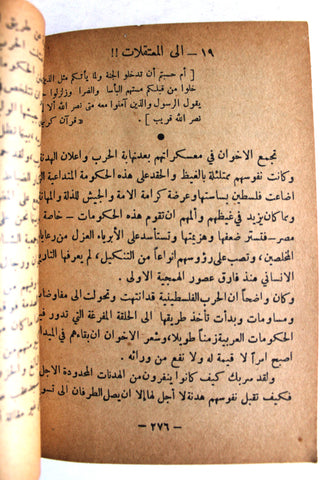 ١٩ – الى المعتقلات !!
[ أم حسبتم أن تدخلوا الجنة ولما يأتكم مثل الذين
خلوا من قبلكم مستهم البأساء والضراء وزلزلوا حتى
يقول الرسول والذين آمنوا معه متى نصر الله ألا
نصر الله قريب ] . « قرآن كريم
تجمع الاخوان في معسكراتهم بعد نهاية الحرب واعلان الهدنة
وكانت نفوسهم ممتلئة بالغيظ والحقد على هذه الحكومات المتداعية التي
اضاعت فلسطين بسياستها وعرضة كرامة الامة والجيش للذلة والمهانة
ومما كان يزيد في غيظهم وألمهم ان تقوم هذه الحكومات – خاصة
مصر – فتستر ضعفها وهزيمتها وتستأسد على الأبرياء العزل من رعاياها
المخلصين ، وتصب على رؤسهم انواعاً من التنكيل ، لم يعرفها التاريخ
الانساني منذ فارق عصور الهمجية الاولى .
وكان واضحاً ان الحرب الفلسطينية قد انتهت وتحولت الى مفاوضات
ومساومات وبدأت تأخذ طريقها الى الحلقة المفرغة التي تدور فيها
الحكومات العربية زمناً طويلاً ، وشعر الاخوان ان بقاءهم في الميدان
اصبح امراً لا قيمة له ولا نفع من ورائه .
ولقد مر بك كيف كانوا ينفرون من الهدنات المحدودة الاجل
فكيف تقبل نفوسهم هدنة لا أجل لها الا ان يصل الطرفان الى تسوية
– ٢٧٦ –